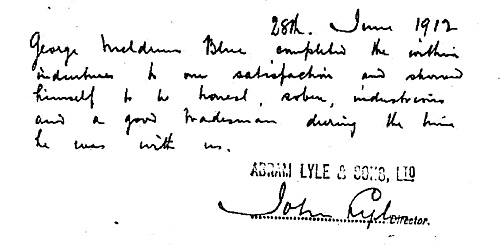 28th. June 1912
George Meldrum Blue completed the within
indentures to our satisfaction and showed
himself to be honest, sober, industrious
and a good tradesman during the time
he was with us.
ABRAM LYLE & SONS, LTD
John Lyle Director.